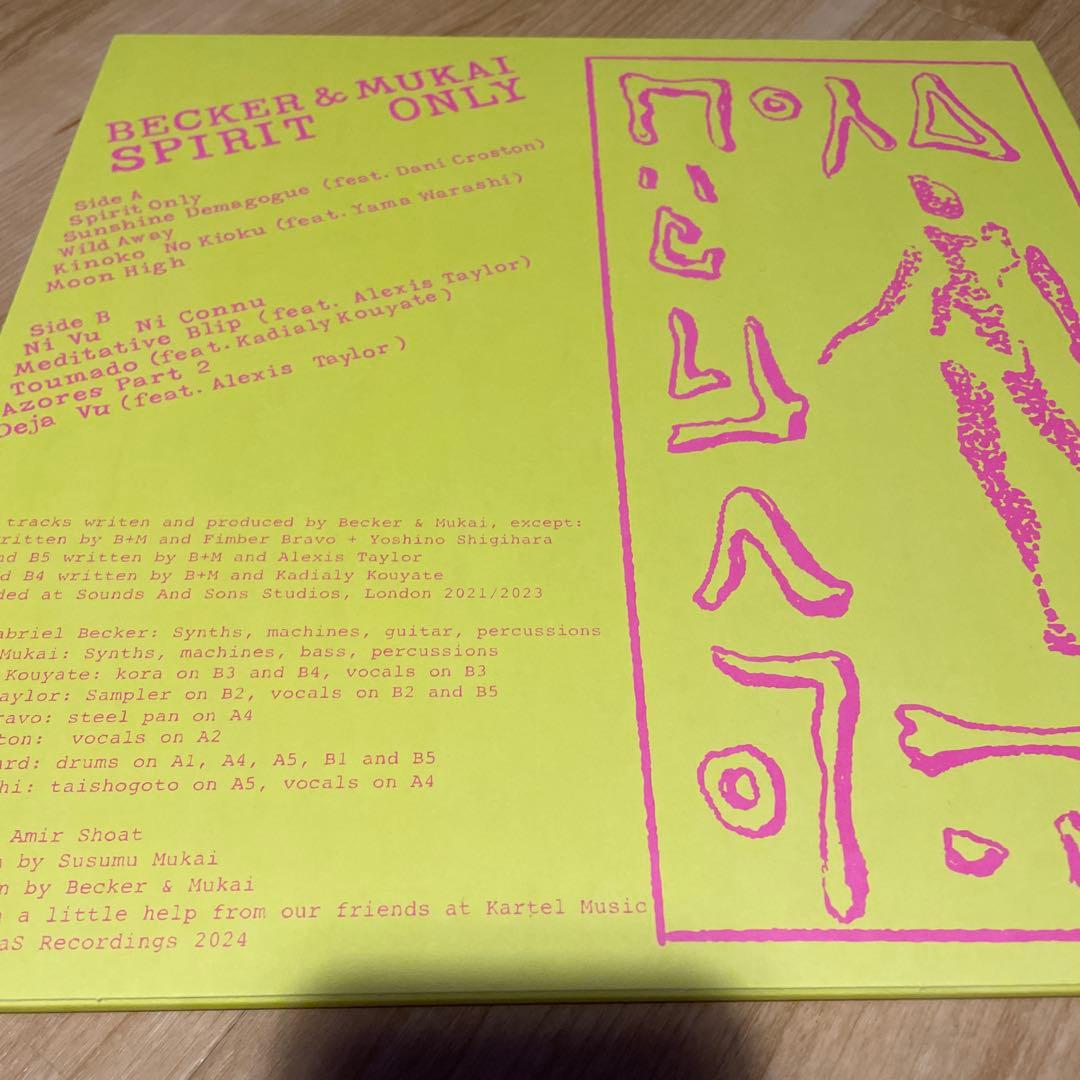 BECKER & MUKAI
SPIRIT ONLY
Side A
Spirit Only
Sunshine Demagogue (feat. Dani Croston)
Wild Away
Kinoko No Kioku (feat. Yama Warashi)
Moon High
Side B
Ni Vu Ni Connu
Meditative Blip (feat. Alexis Taylor)
Toumado (feat. Kadialy Kouyate)
Azores Part 2
Deja Vu (feat. Alexis Taylor)
tracks writen and produced by Becker & Mukai, except:
ritten by B+M and Fimber Bravo + Yoshino Shigihara
nd B5 written by B+M and Alexis Taylor
d B4 written by B+M and Kadialy Kouyate
ded at Sounds And Sons Studios, London 2021/2023
abriel Becker: Synths, machines, guitar, percussions
Mukai: Synths, machines, bass, percussions
Kouyate: kora on B3 and B4, vocals on B3
aylor: Sampler on B2, vocals on B2 and B5
ravo: steel pan on A4
ton: vocals on A2
ard: drums on A1, A4, A5, B1 and B5
hi: taishogoto on A5, vocals on A4
Amir Shoat
by Susumu Mukai
n by Becker & Mukai
a little help from our friends at Kartel Music
aS Recordings 2024